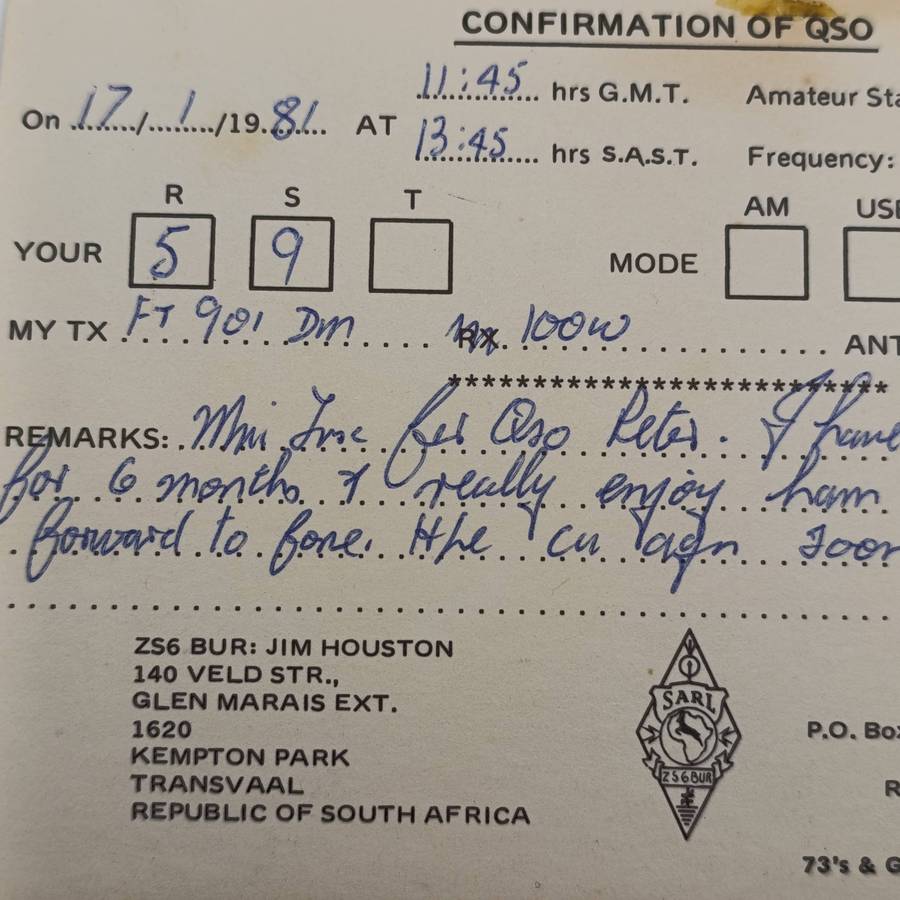 CONFIRMATION OF QSO
On 17/1/1981 AT 11:45 hrs G.M.T. Amateur Sta
13:45 hrs S.A.S.T. Frequency:
R S T AM USB
YOUR 5 9 MODE
MY TX FT 901 DM RX 100W ANT
*************************
REMARKS: Mni Tnx fer Qso Peter. I have
for 6 months & really enjoy ham
forward to fone. Hpe cu agn soon
ZS6 BUR: JIM HOUSTON
140 VELD STR.,
GLEN MARAIS EXT.
1620
KEMPTON PARK
TRANSVAAL
REPUBLIC OF SOUTH AFRICA
SARL
ZS6BUR
P.O. Box
R
73's & G